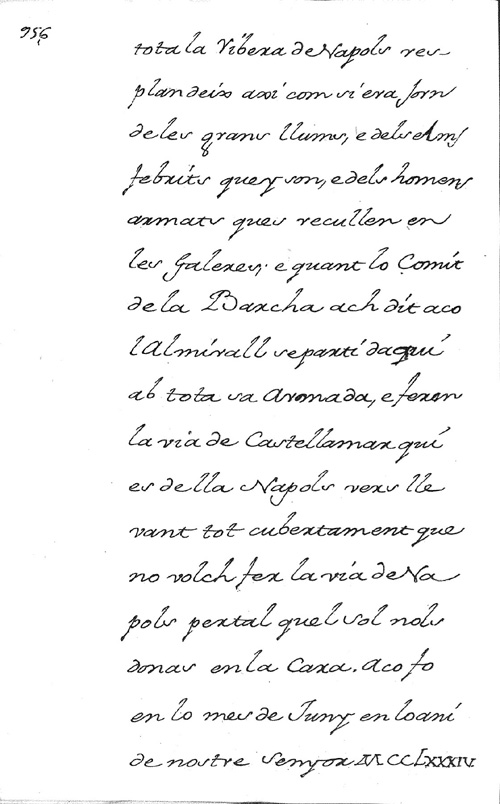 956
tota la Ribera de Napols res-
plandeix axi com si era forn
de les grans llums, e dels Elms
febrits quey son, e dels homens
armats ques recullen en
les Galeres; e quant lo Comit
de la Barcha ach dit aco
l Almirall separti daqui
ab tota sa Armada, e feren
la via de Castellamar qui
es de lla Napols vers lle
vant tot cubertament que
no volch fer la via de Na
pols pertal quel sol nols
donas en la Cara. Aco fo
en lo mes de Juny en loani
de nostre Senyor MCCLXXXIV